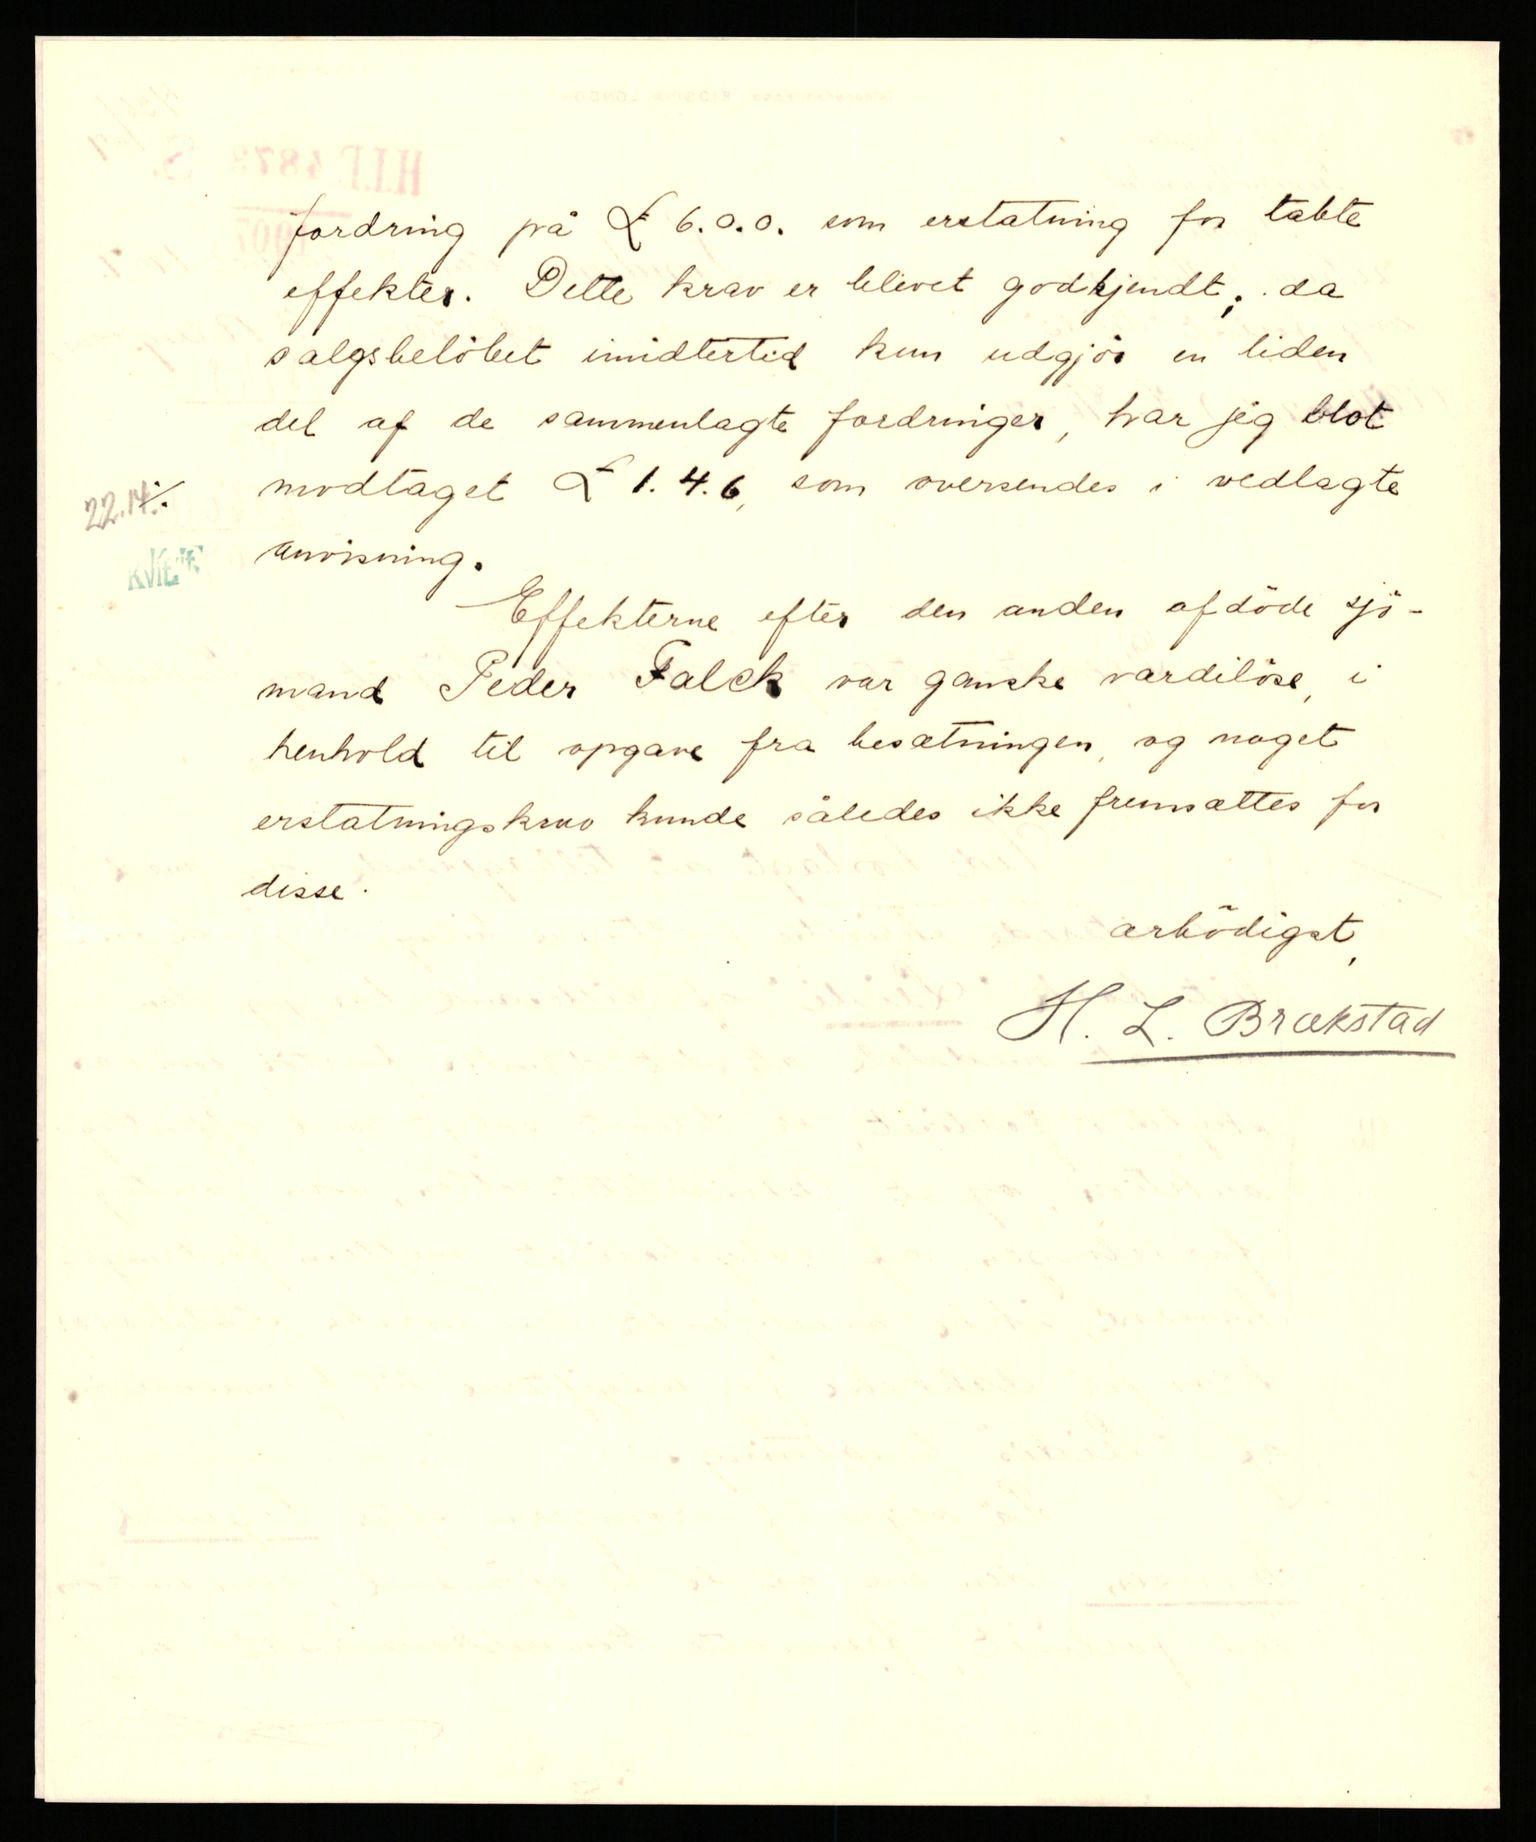 fordring på £ 6.0.0. som erstatning for tabte
effekter. Dette krav er blevet godkjendt; da
salgsbelöbet imidlertid kun udgjör en liden
del af de sammenlagte fordringer, har jeg blot
22.14. ·/.
modtaget £ 1.4.6, som oversendes i vedlagte
anvisning.
Effekterne efter den anden afdöde sjö-
mand Peder Falck var ganske værdilöse, i
henhold til opgave fra besætningen, og noget
erstatningskrav kunde således ikke fremsættes for
disse.
ærbödigst,
H. L. Brækstad